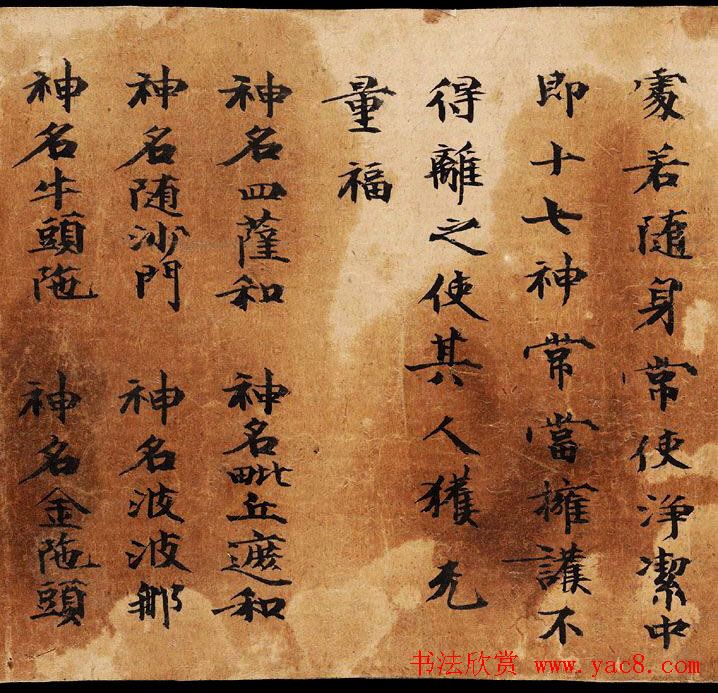 處若随身常使淨潔中
即十七神常當擁護不
得離之使其人獲无
量福
神名四薩和 神名毗丘遮和
神名随沙門 神名波波那
神名牛頭陁 神名金陁頭
书法欣赏 www.yac8.com